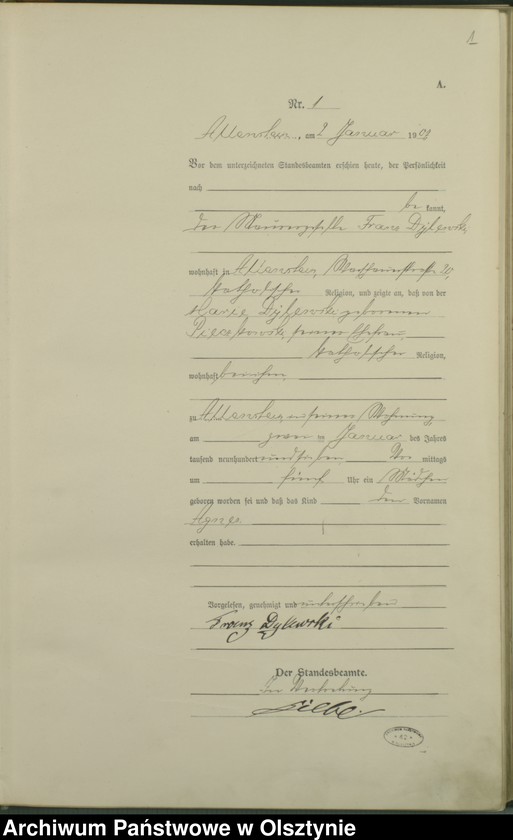 1
A.
Nr. 1
Allenstein, am 2 Januar 190
Vor dem unterzeichneten Standesbeamten erschien heute, der Persönlichkeit
nach
be kannt,
der Maurergeselle Franz Dylewski,
wohnhaft in Allenstein,
katholischer Religion, und zeigte an, daß von der
Marie Dylewski geborenen
seiner Ehefrau,
katholischer Religion,
wohnhaft bei ihm,
zu Allenstein, in seiner Wohnung
am zwei ten Januar des Jahres
tausend neunhundert und Vor mittags
um fünf Uhr ein Mädchen
geboren worden sei und daß das Kind den Vornamen
Agnes
erhalten habe.
Vorgelesen, genehmigt und unterschrieben
Franz Dylewski
Der Standesbeamte.
In Vertretung
Archiwum Państwowe w Olsztynie